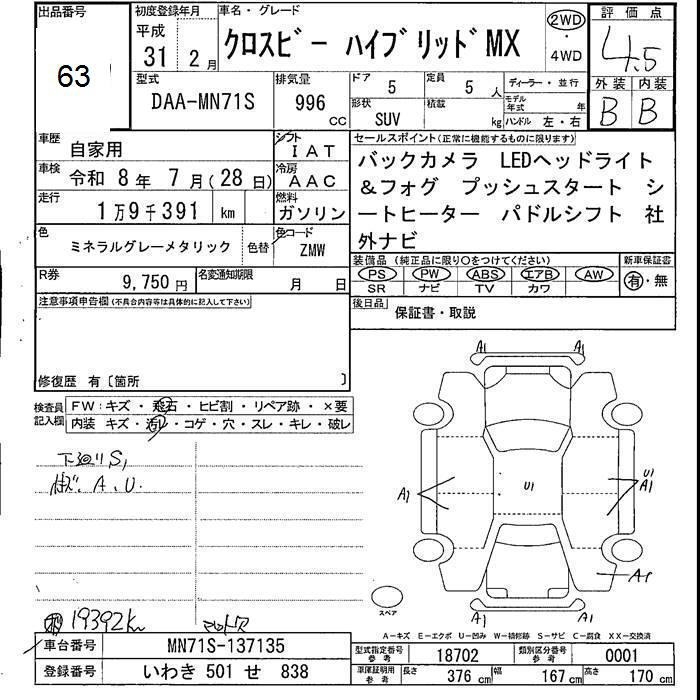 出品番号
63
初度登録年月
平成
31 2月
車名・グレード
クロスビー ハイブリッドMX
2WD
・
4WD
評価点
4.5
型式
DAA-MN71S
排気量
996
CC
ドア
5
定員
5 人
形状
SUV
積載
kg
ディーラー・並行
モデル年式 年
ハンドル 左・右
外装 内装
B B
車歴
自家用
シフト
IAT
車検
令和 8年 7月(28日)
冷房
AAC
走行
1万9千391 km
燃料
ガソリン
色
ミネラルグレーメタリック
色替
色コード
ZMW
R券
9,750円
名変通知期限
月 日
セールスポイント(正常に機能するものに限ります)
バックカメラ LEDヘッドライト
&フォグ プッシュスタート シ
ートヒーター パドルシフト 社
外ナビ
装備品 (純正品に限り○をつけてください)
PS PW ABS エアB AW
SR ナビ TV カワ
新車保証書
有・無
後日品
保証書・取説
注意事項申告欄(不具合内容等は具体的に記入して下さい)
修復歴 有〔箇所 〕
検査員記入欄
FW:キズ・飛石・ヒビ割・リペア跡・×要
内装 キズ・汚レ・コゲ・穴・スレ・キレ・破レ
下廻りS,
A.U.
19392km
A1 A1
A1
U1
U1
A1
A1
A1 A1
スペア
A-キズ E-エクボ U-凹み W-補修跡 S-サビ C-腐食 XX-交換済
車台番号
MN71S-137135
登録番号
いわき 501 せ 838
型式指定番号
参考
18702
類別区分番号
参考
0001
車庫証明用
参考
長さ 376 cm
幅 167 cm
高さ 170 cm